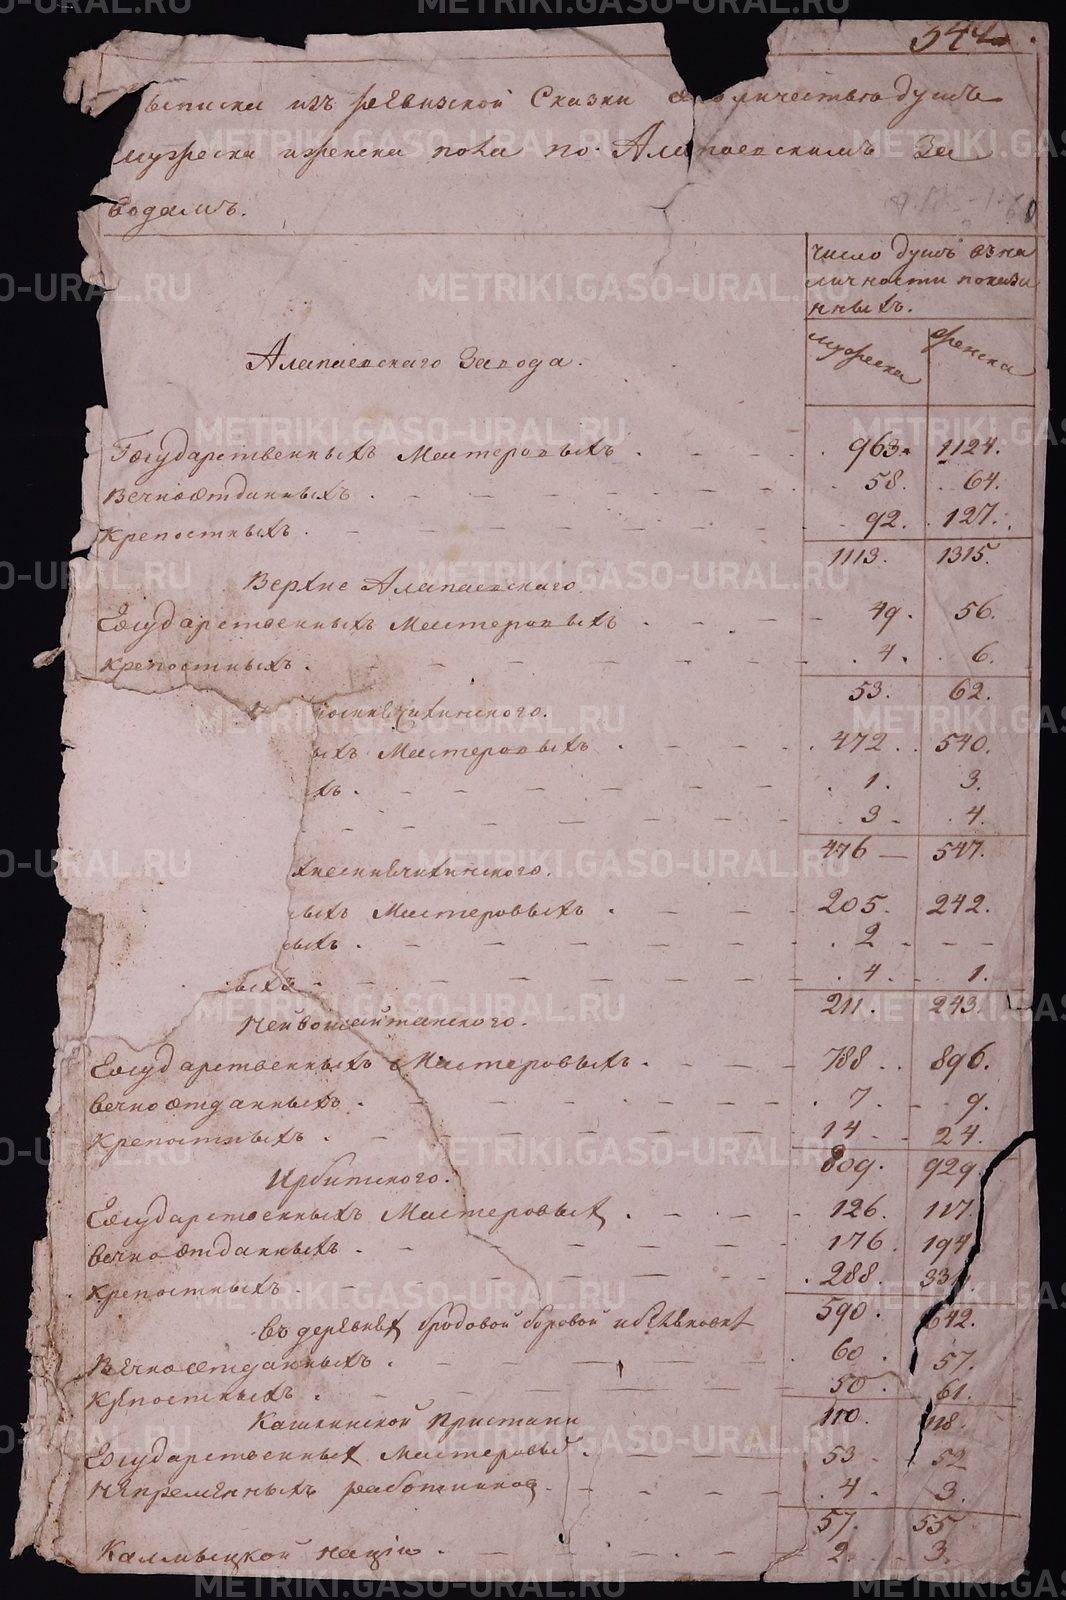 544
выписка изъ ревизской Сказки о количествѣ душъ
мужеска и женска пола по Алапаевскимъ За
водамъ.
число душъ въ на
личности показа
нныхъ.
мужеска женска
Алапаевскаго Завода.
Государственныхъ Мастеровыхъ 963. 1124.
Вечноотданныхъ 58. 64.
Крепостныхъ 92. 127.
1113. 1315.
Верхне Алапаевскаго
Государственныхъ Мастеровыхъ 49. 56.
Крепостныхъ 4. 6.
53. 62.
синячихинского.
ыхъ Мастеровыхъ 472. 540.
хъ 1. 3.
3 4.
476 547.
хнесинячихинского.
ныхъ Мастеровыхъ 205. 242.
ныхъ 2 - -
ыхъ 4 1.
211. 243.
Нейвошайтанского.
Государственныхъ Мастеровыхъ 788. 896.
вечноотданныхъ 7. 9.
Крепостныхъ 14 24.
809. 929.
Ирбитского.
Государственныхъ Мастеровых 126. 117.
вечноотданныхъ 176 194
Крепостныхъ 288. 331.
590. 642.
въ деревнях бродовой боровой и
Вечноотданныхъ 60. 57.
Крепостныхъ 50. 61.
110. 118.
Кашкинской Пристани
Государственных Мастеровых 53 52
Непременныхъ работников 4. 3.
57. 55
Калмыцкой нации 2. 3.
METRIKI.GASO-URAL.RU